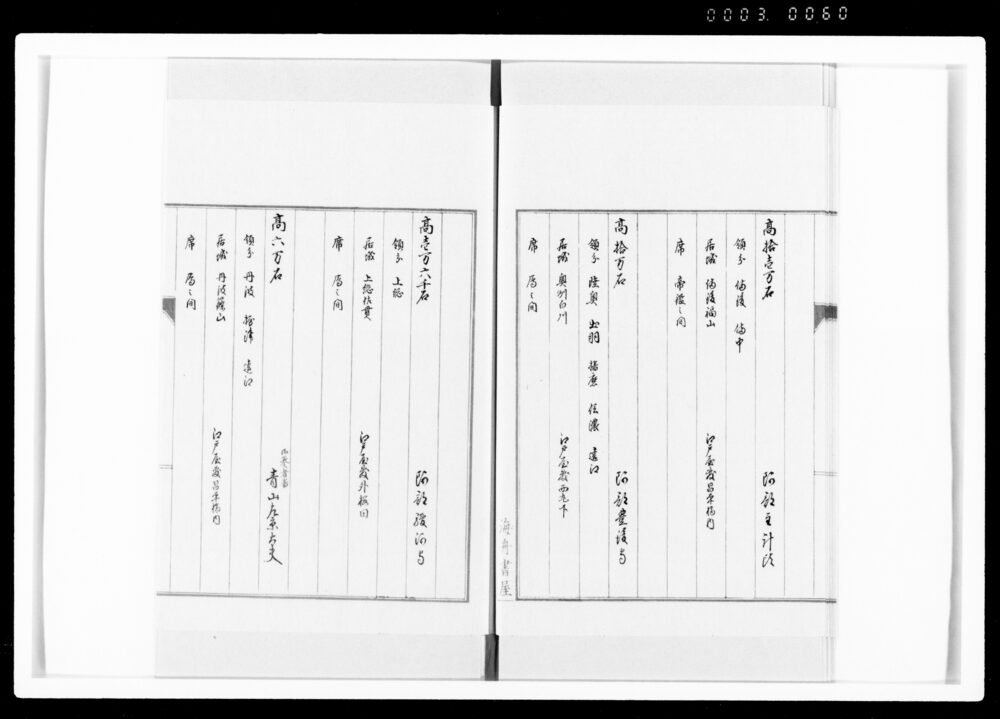 0003. 0060
高拾壱万石
阿部主計頭
領分 備後 備中
居城 備後福山
江戸屋敷昌平橋内
席 帝鑑之間
高拾万石
阿部豊後守
領分 陸奥 出羽 播磨 信濃 遠江
居城 奥州白川
江戸屋敷西丸下
席 鴈之間
海舟書屋
高壱万六千石
阿部駿河守
領分 上総
居城 上総佐貫
江戸屋敷外桜田
席 鴈之間
高六万石
青山左京大夫
領分 丹波 摂津 遠江
居城 丹波篠山
江戸屋敷昌平橋内
席 鴈之間